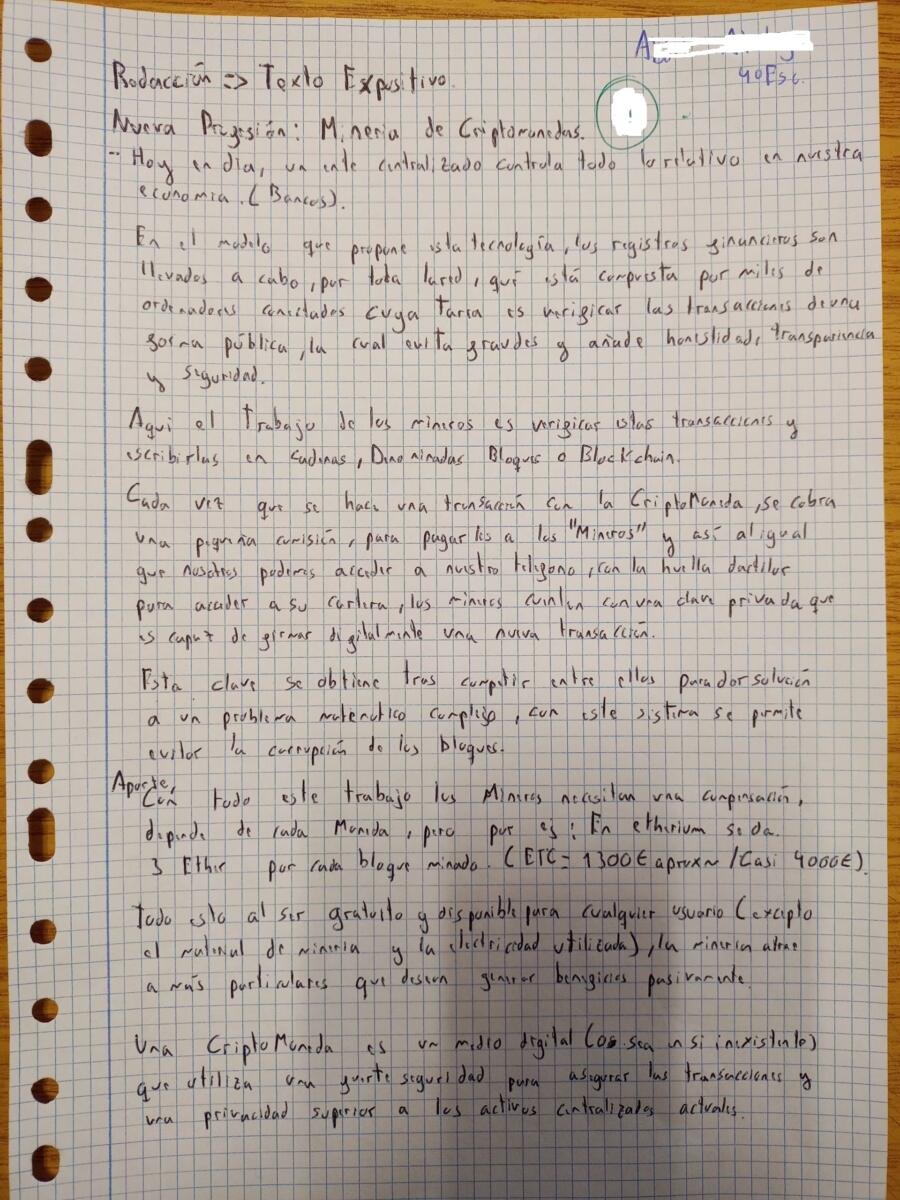 4º Esc.
Redacción => Texto Expositivo.
Nueva Profesión: Mineria de Criptomonedas.
- Hoy en dia, un ente centralizado controla todo lo relativo en nuestra
economia. (Bancos).
En el modelo que propone esta tecnología, los registros financieros son
llevados a cabo, por toda la red, qué está compuesta por miles de
ordenadores conectados cuya tarea es verificar las transacciones de una
forma pública, la cual evita fraudes y añade honestidad, transparencia
y seguridad.
Aqui el Trabajo de los mineros es verificar estas transacciones y
escribirlas en cadenas, Denominadas Bloques o Blockchain.
Cada vez que se hace una transacción con la CriptoMoneda, se cobra
una pequeña comisión, para pagarles a los "Mineros" y así al igual
que nosotros podemos acceder a nuestro telefono, con la huella dactilar
para acceder a su cartera, los mineros cuentan con una clave privada que
es capaz de firmar digitalmente una nueva transacción.
Esta clave se obtiene tras competir entre ellos para dar solución
a un problema matematico complejo, con este sistema se permite
evitar la corrupción de los bloques.
Aparte,
Con todo este trabajo los Mineros necesitan una compensación,
depende de cada Moneda, pero por ej: En etherium se da.
3 Ether por cada bloque minado. (ETC = 1300€ aprox ~ / Casi 4000€).
Todo esto al ser gratuito y disponible para cualquier usuario (excepto
el material de mineria y la electricidad utilizada), la mineria atrae
a más particulares que deseen generar beneficios pasivamente.
Una CriptoMoneda es un medio digital (o sea en si inexistente)
que utiliza una fuerte seguridad para asegurar las transacciones y
una privacidad superior a los activos centralizados actuales.